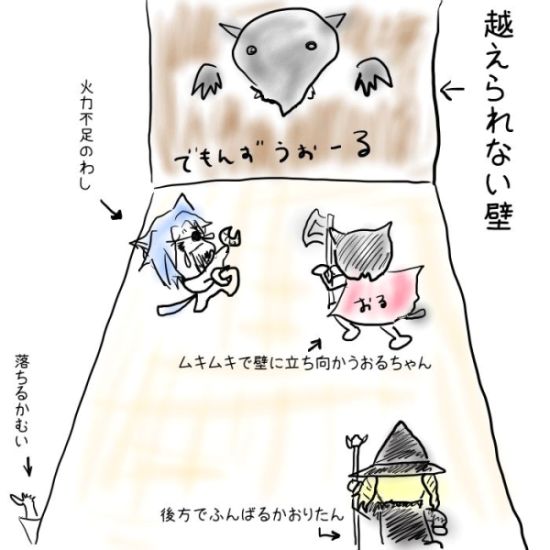 越えられない壁
でもんずうぉーる
火力不足のわし
おる
ムキムキで壁に立ち向かうおるちゃん
落ちるかむい
後方でふんばるかおりたん